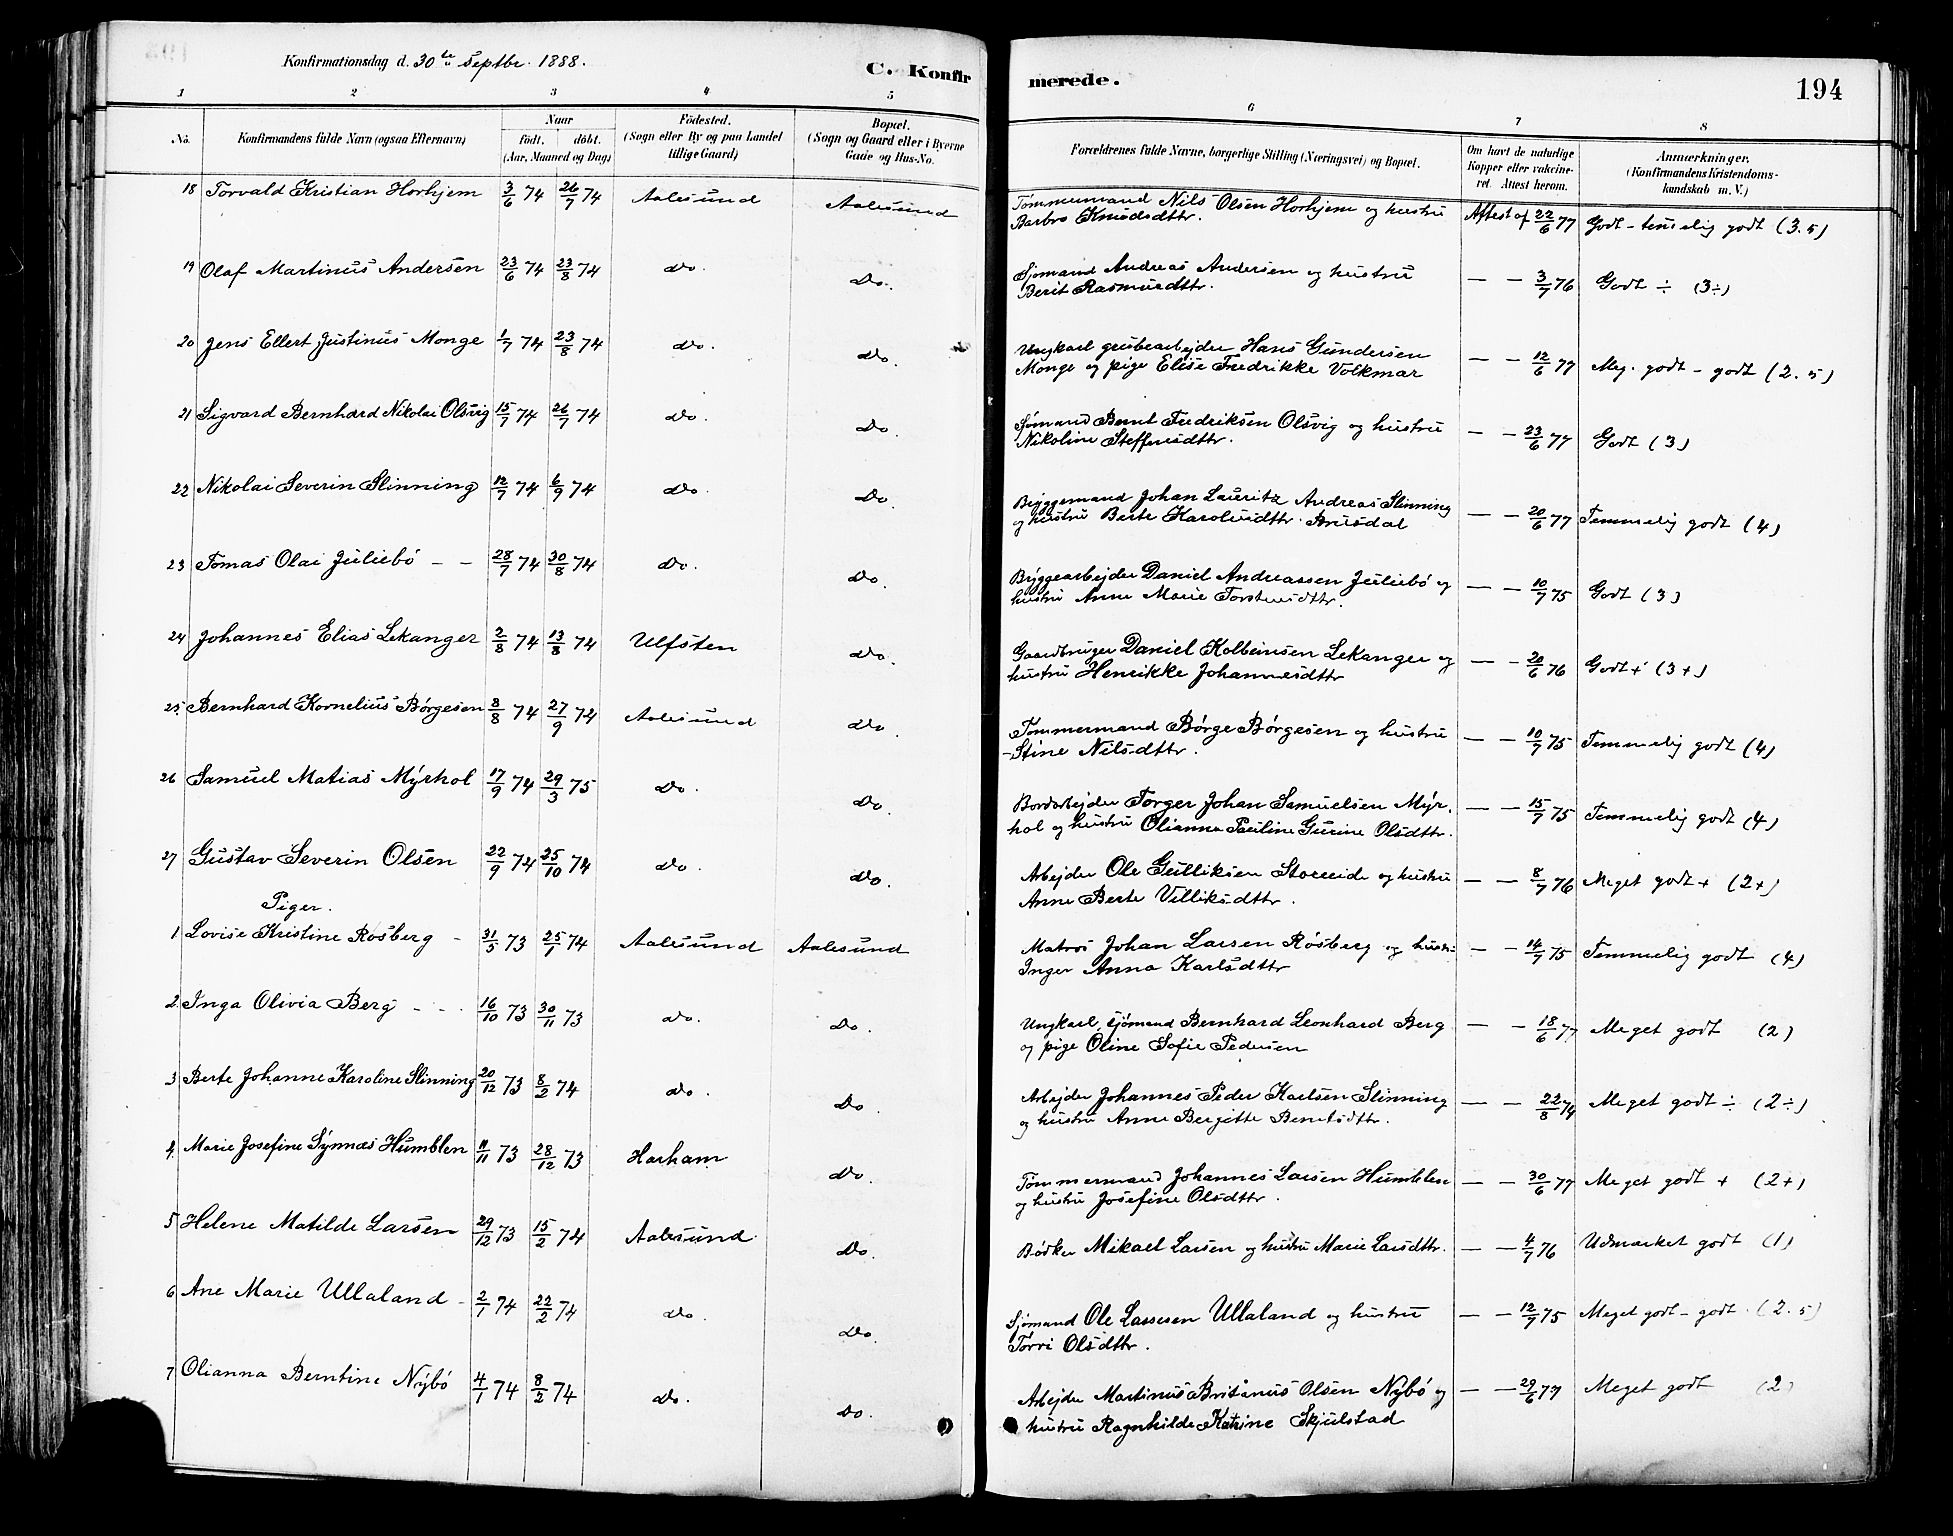 Konfirmationsdag d. 30te Septbr. 1888.
C. Konfir
merede.
194
1 2 3 4 5 6 7 8
No.
Konfirmandens fulde Navn (ogsaa Efternavn)
Naar
födt. döbt.
(Aar, Maaned og Dag)
Födested.
(Sogn eller By og paa Landet
tillige Gaard)
Bopæl.
(Sogn og Gaard eller i Byerne
Gade og Hus-No.
Forældrenes fulde Navne, borgerlige Stilling (Næringsvei) og Bopæl.
Om havt de naturlige
Kopper eller vakcine-
ret. Attest herom.
Anmærkninger.
(Konfirmandens Kristendoms-
kundskab m. V.)
18 Torvald Kristian Horhjem 3/6 74 26/7 74 Aalesund Aalesund
Tømmermand Nils Olsen Horhjem og hustru
Barbro Knudsdttr. Attest af 22/6 77 Godt - temmelig godt (3.5)
19 Olaf Martinus Andersen 23/6 74 23/8 74 Do. Do.
Sjømand Andreas Andersen og hustru
Berit Rasmusdttr. — — 3/7 76 Godt ÷ (3÷)
20 Jens Ellert Justinus Monge 1/7 74 23/8 74 Do. Do.
Ungkarl grubearbejder Hans Gundersen
Monge og pige Elise Fredrikke Volkmar — — 12/6 77 Meg. godt - godt (2.5)
21 Sigvard Bernhard Nikolai Olsvig 15/7 74 26/7 74 Do. Do.
Sjømand Bernt Fredriksen Olsvig og hustru
Nikoline Steffensdttr. — — 23/6 77 Godt (3)
22 Nikolai Severin Slinning 12/7 74 6/9 74 Do. Do.
Bryggemand Johan Lauritz Andreas Slinning
og hustru Berte Karolusdttr. Brusdal — — 20/6 77 Temmelig godt (4)
23 Tomas Olai Juliebö — — 28/7 74 30/8 74 Do. Do.
Bryggearbejder Daniel Andreassen Juliebö og
hustru Anne Marie Torstensdttr. — — 10/7 75 Godt (3)
24 Johannes Elias Lekanger 2/8 74 13/8 74 Ulfsten Do.
Gaardbruger Daniel Kolbeinsen Lekanger og
hustru Henrikke Johannesdttr — — 20/6 76 Godt + (3+)
25. Bernhard Kornelius Börgesen 8/8 74 27/9 74 Aalesund Do.
Tømmermand Börge Börgesen og hustru
Stine Nilsdttr. — — 10/7 75 Temmelig godt (4)
26 Samuel Matias Myrhol 17/9 74 29/3 75 Do. Do.
Bordarbejder Torger Johan Samuelsen Myr-
hol og hustru Olianna Pauline Gurine Olsdttr. — — 15/7 75 Temmelig godt (4)
27 Gustav Severin Olsen 22/9 74 25/10 74 Do. Do.
Arbejder Ole Gulliksen Storeide og hustru
Anne Berte Villiksdttr. — — 8/7 76 Meget godt + (2+)
Piger.
1 Lovise Kristine Rösberg - 31/5 73 25/1 74 Aalesund Aalesund
Matros Johan Larsen Rösberg og hustru
Inger Anna Karlsdttr — — 14/7 75 Temmelig godt (4)
2 Inga Olivia Berg - - 16/10 73 30/11 73 Do. Do.
Ungkarl, sjømand Bernhard Leonhard Berg
og pige Oline Sofie Pedersen — — 18/6 77 Meget godt (2)
3 Berte Johanne Karoline Slinning 20/12 73 8/2 74 Do. Do.
Arbejder Johannes Peder Karlsen Slinning
og hustru Anne Bergitte Berntsdttr. — — 22/8 74 Meget godt ÷ (2÷)
4. Marie Josefine Synnæs Humblen 11/11 73 28/12 73 Harham Do.
Tømmermand Johannes Larsen Humblen
og hustru Josefine Olsdttr. — — 30/6 77 Meget godt + (2+)
5 Helene Matilde Larsen 29/12 73 15/2 74 Aalesund Do.
Bødker Mikael Larsen og hustru Marie Larsdttr. — — 4/7 76 Udmærket godt (1)
6 Ane Marie Ullaland - 2/1 74 22/2 74 Do. Do.
Sjømand Ole Lassesen Ullaland og hustru
Törri Olsdttr. — — 12/7 75 Meget godt - godt. (2.5)
7 Olianna Berntine Nybö 4/1 74 8/2 74 Do. Do.
Arbejder Martinus Britanus Olsen Nybö og
hustru Ragnhilde Katrine Skjulstad — — 29/6 77 Meget godt (2)